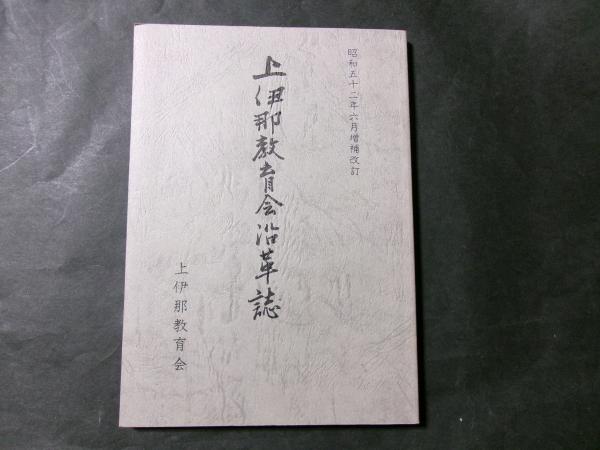 昭和五十二年六月増補改訂
上伊那教育会沿革誌
上伊那教育会